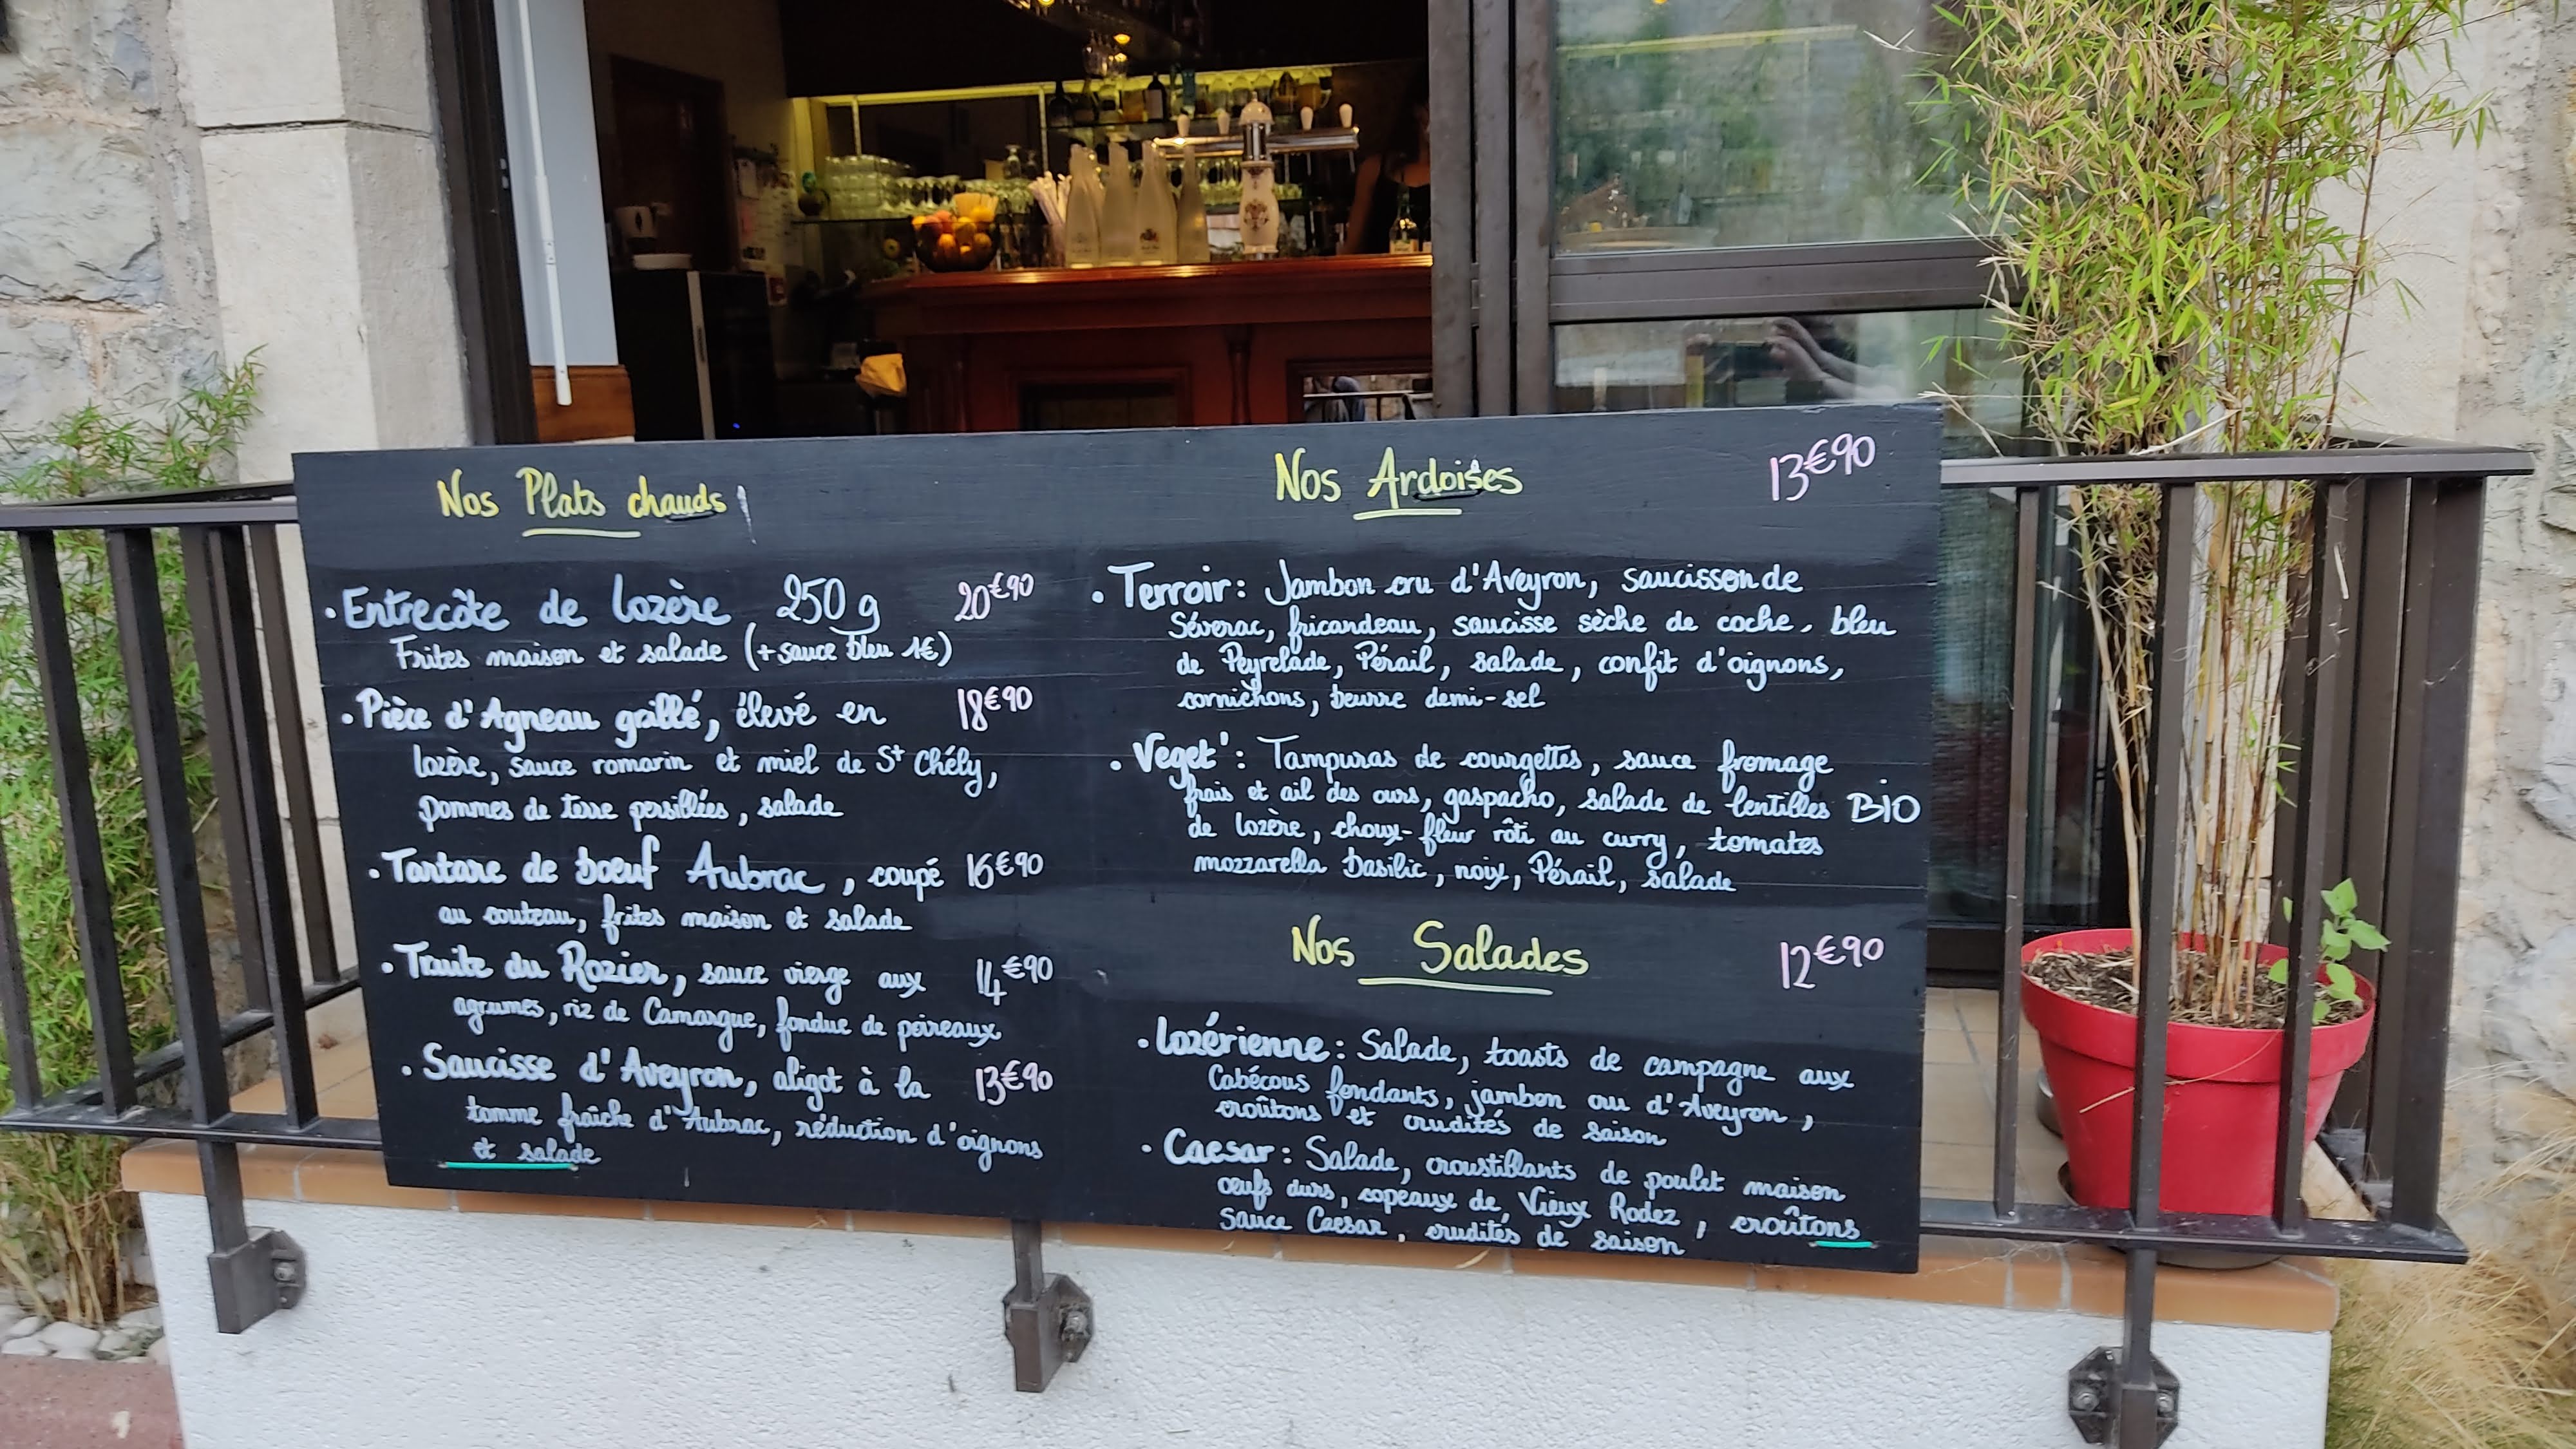 Nos Plats chauds
• Entrecôte de Lozère 250 g 20€90
Frites maison et salade (+ sauce bleu 1€)
• Pièce d'Agneau grillé, élevé en 18€90
Lozère, sauce romarin et miel de St Chély,
pommes de terre persillées, salade
• Tartare de boeuf Aubrac, coupé 16€90
au couteau, frites maison et salade
• Truite du Rozier, sauce vierge aux 14€90
agrumes, riz de Camargue, fondue de poireaux
• Saucisse d'Aveyron, aligot à la 13€90
tomme fraîche d'Aubrac, réduction d'oignons
et salade
Nos Ardoises 13€90
• Terroir : Jambon cru d'Aveyron, saucisson de
Séverac, fricandeau, saucisse sèche de coche, bleu
de Peyrelade, Pérail, salade, confit d'oignons,
cornichons, beurre demi-sel
• Veget' : Tampuras de courgettes, sauce fromage
frais et ail des ours, gaspacho, salade de lentilles BIO
de Lozère, choux-fleur rôti au curry, tomates
mozzarella basilic, noix, Pérail, salade
Nos Salades 12€90
• Lozérienne : Salade, toasts de campagne aux
Cabécous fondants, jambon cru d'Aveyron,
croûtons et crudités de saison
• Caesar : Salade, croustillants de poulet maison
œufs durs, copeaux de Vieux Rodez, croûtons
sauce Caesar, crudités de saison